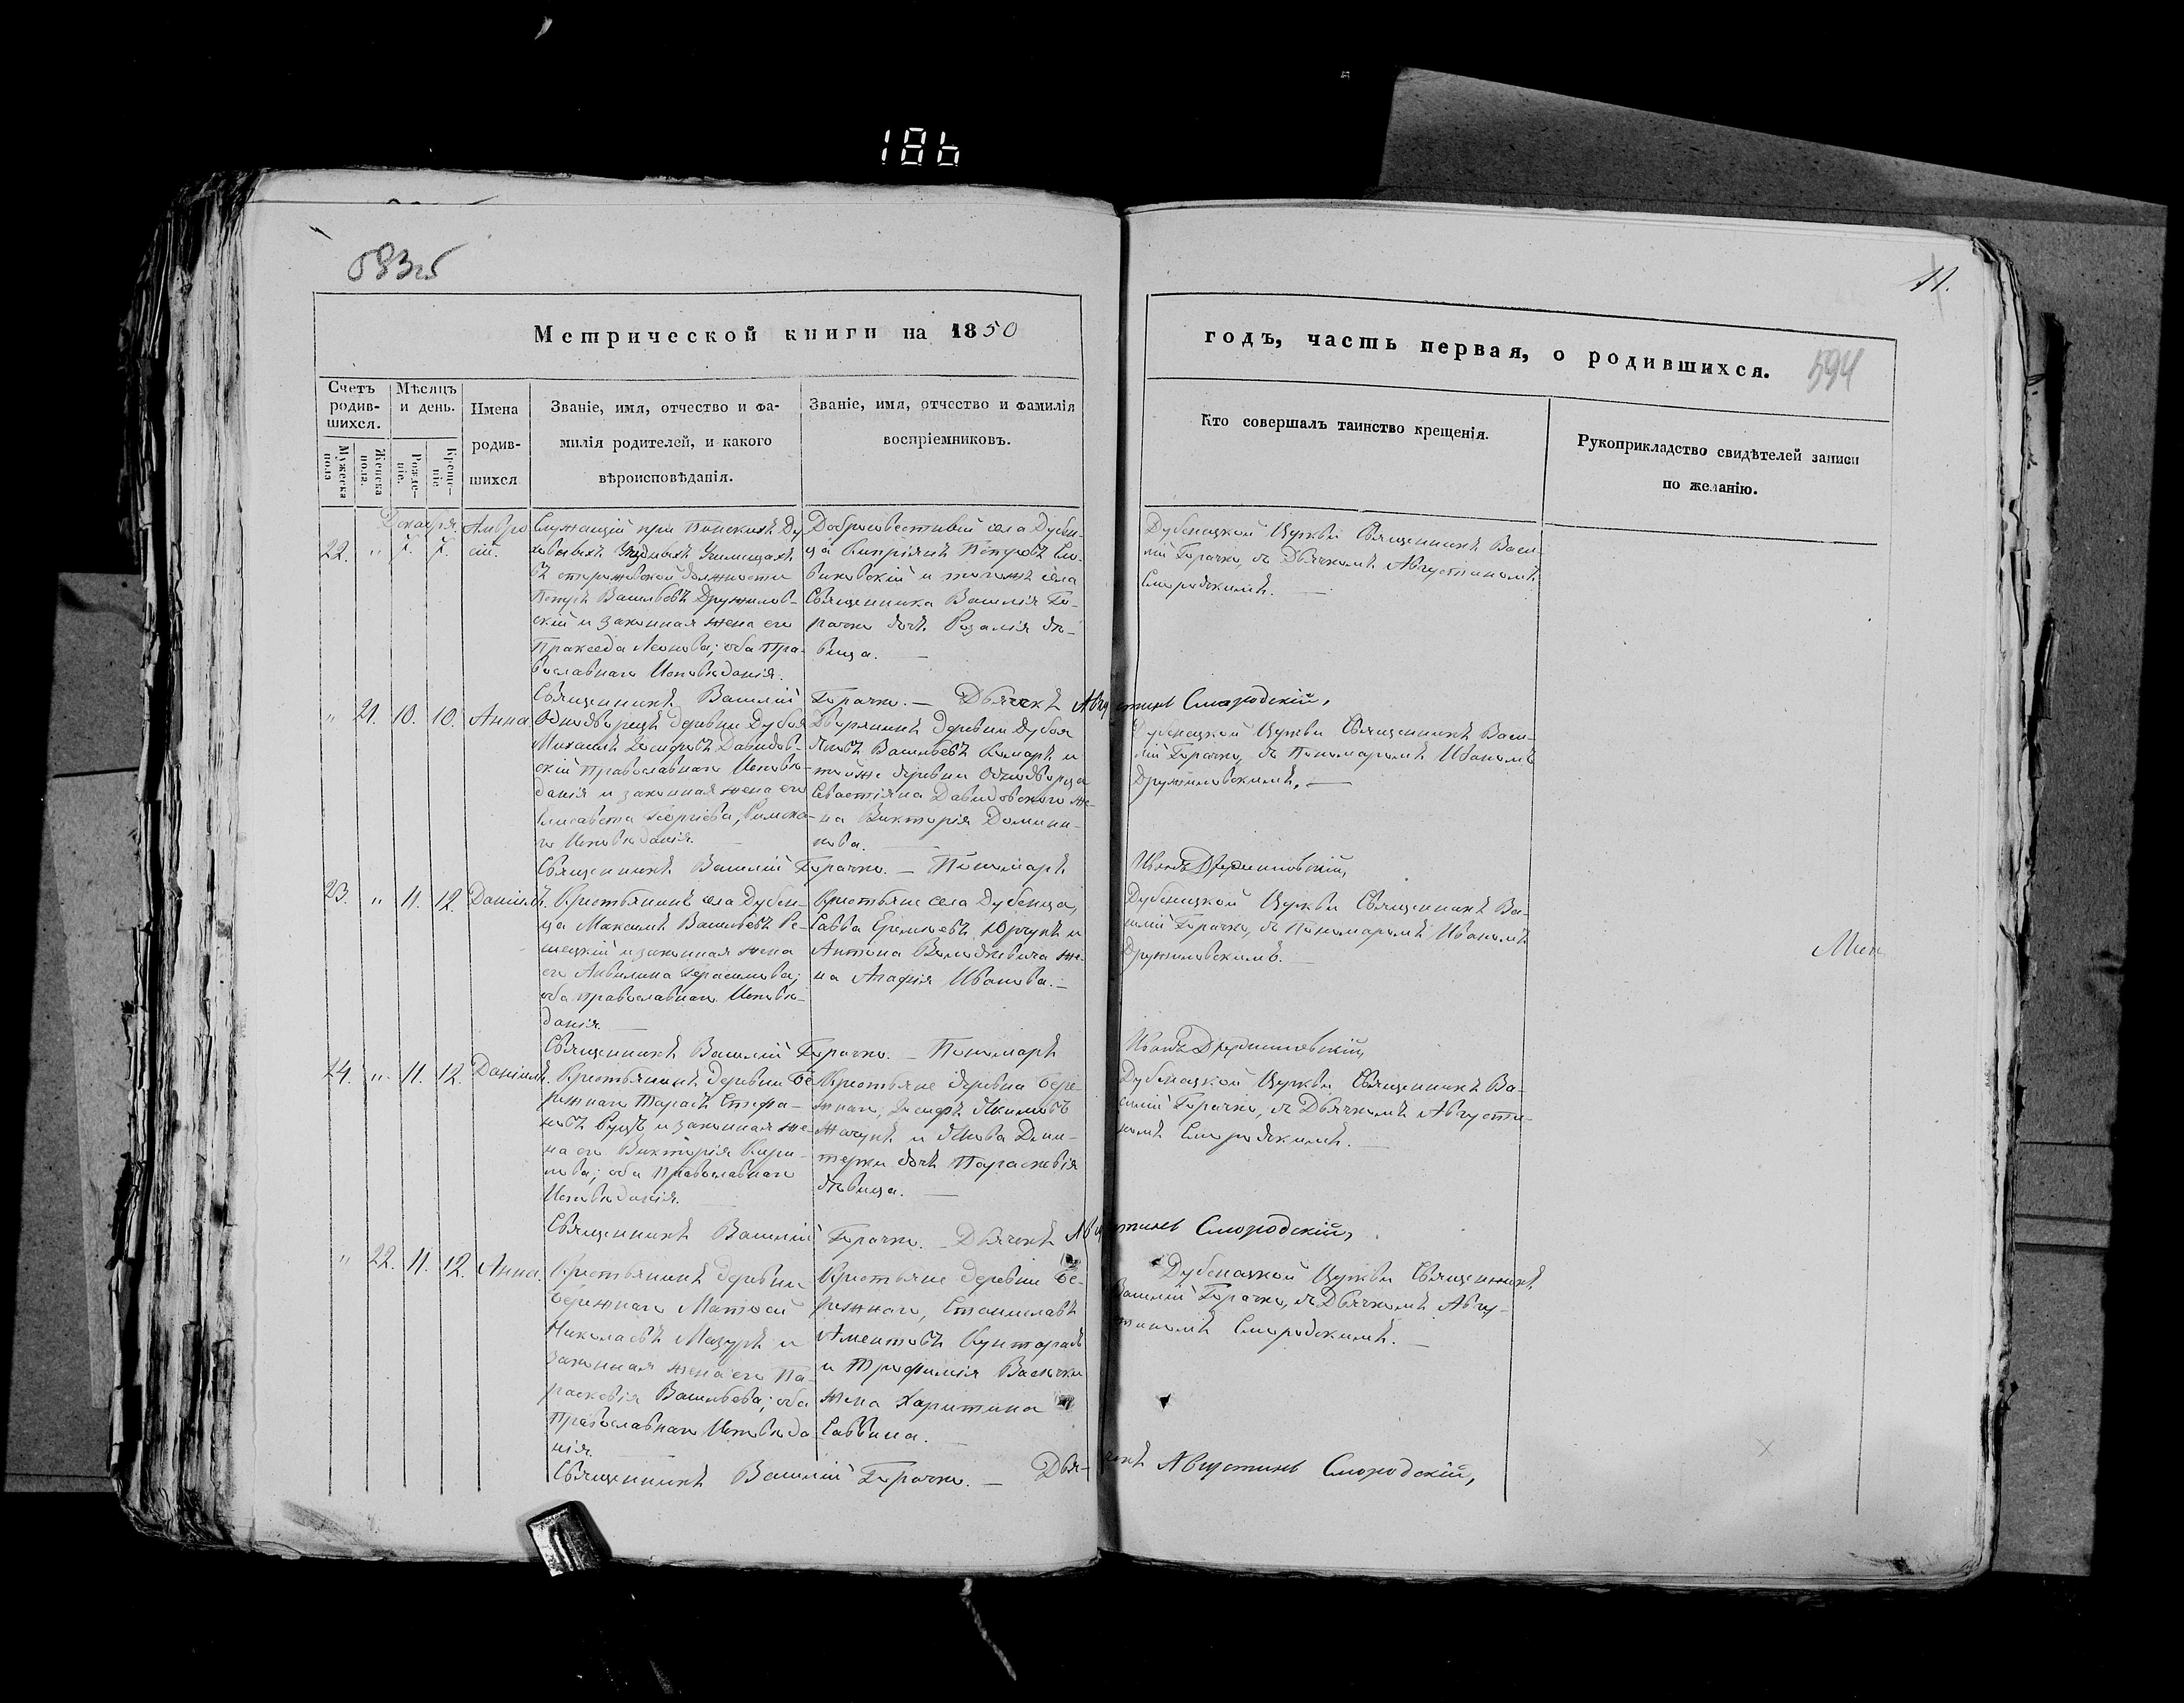 186
593об
11.
594
Метрической книги на 1850
годъ, часть первая, о родившихся.
Счетъ родив-
шихся.
Мужеска пола
Женска пола.
Мѣсяцъ
и день.
Рожде-
ніе.
Креще-
ніе
Имена
родив-
шихся
Званіе, имя, отчество и фа-
милія родителей, и какого
вѣроисповѣданія.
Званіе, имя, отчество и фамилія
воспріемниковъ.
Кто совершалъ таинство крещенія.
Рукоприкладство свидѣтелей записи
по желанію.
Декабря
22. " 7. 7.
Амвро
сій.
Служащій при Пинскихъ Ду
ховныхъ Уѣздныхъ Училищахъ
въ сторожевской должности
Петръ Васильевъ Дружилов-
скій и законная жена его
Пракседа Леонова; оба Пра-
вославнаго Исповѣданія.
Добросовестный села Дубен-
ца Кипріянъ Петровъ
и тогожъ села
Священника Василія Го-
рачко дочь Розалія дѣ-
вица. —
Дубенецкой Церкви Священникъ Васи-
лій Горачко, съ Дьячкомъ Августиномъ
Смородскимъ. —
Священникъ Василій Горачко. — Дьячекъ Августинъ Смородскій,
" 21. 10. 10. Анна
Однодворецъ деревни Дубоя
Михаилъ Іосифовъ Давидов-
скій Православнаго Исповѣ-
данія и законная жена его
Елисавета Георгіева, Римска-
го Исповѣданія.
Дворянинъ деревни Дубоя
Васильевъ Комаръ и
тойже деревни Однодворца
Севастіяна Давидовскаго же-
на Викторія Домини-
кова. —
Дубенецкой Церкви Священникъ Васи-
лій Горачко, съ Пономаремъ Иваномъ
Дружиловскимъ. —
Священникъ Василій Горачко. — Пономарь Иванъ Дружиловскій,
23. " 11. 12. Даніилъ.
Крестьянинъ села Дубен-
ца Максимъ Васильевъ Ре-
шецкій и законная жена
его Акилина Герасимова;
оба православнаго Исповѣ-
данія. —
Крестьяне села Дубенца,
Савва Еремѣевъ Юрчукъ и
Антона же-
на Агафія Иванова. —
Дубенецкой Церкви Священникъ Ва-
силій Горачко, съ Пономаремъ Иваномъ
Дружиловскимъ. —
Священникъ Василій Горачко. — Пономарь Иванъ Дружиловскій,
24. " 11. 12. Даніилъ.
Крестьянинъ деревни Бе-
режнаго Тарасъ Стефа-
новъ и законная же-
на его Викторія
оба Православнаго
Исповѣданія. —
Крестьяне деревни Бере-
жнаго, Іосифъ Якимовъ
и Якова
дочь Параскевія
дѣвица. —
Дубенецкой Церкви Священникъ Ва-
силій Горачко, съ Дьячкомъ Августи-
номъ Смородскимъ. —
Священникъ Василій Горачко. — Дьячекъ Августинъ Смородскій,
" 22. 11. 12. Анна.
Крестьянинъ деревни
Бережнаго Матвей
Николаевъ Мазуръ и
законная жена его Па-
раскевія Васильева; оба
Православнаго Исповѣда
нія. —
Крестьяне деревни Бе-
режнаго, Станиславъ
и Трофима
жена Харитина
Саввина. —
Дубенецкой Церкви Священникъ
Василій Горачко, съ Дьячкомъ Авгу-
стиномъ Смородскимъ. —
Священникъ Василій Горачко. — Дьячекъ Августинъ Смородскій,